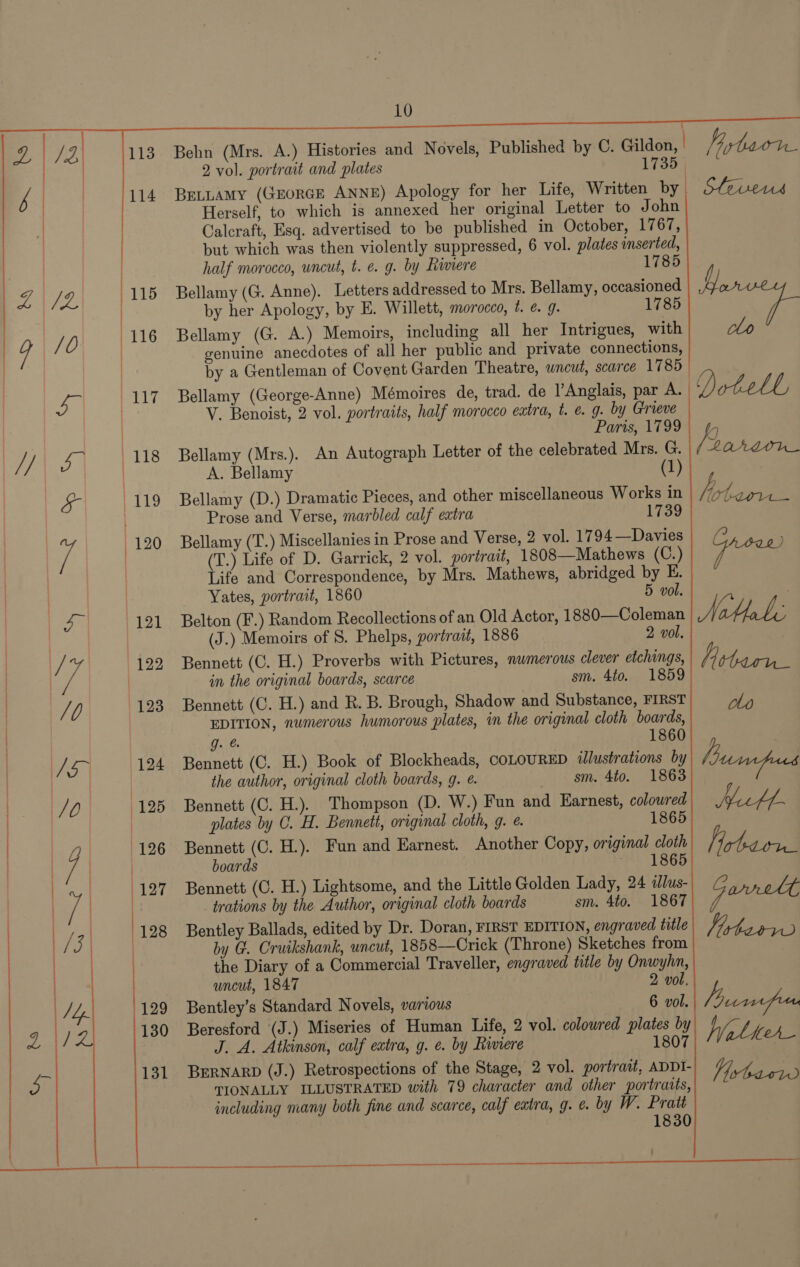 10
2 12 113 Behn (Mrs. A.) Histories and Novels, Published by C. Gildon, Hobson
2 vol. portrait and plates 1735
6 114 BELLAMY (GEORGE ANNE) Apology for her Life, Written by Stevens
Herself, to which is annexed her original Letter to John
Calcraft, Esq. advertised to be published in October, 1767,
but which was then violently suppressed, 6 vol. plates inserted,
half morocco, uncut, t. e. g. by Riviere 1785
2 12 115 Bellamy (G. Anne). Letters addressed to Mrs. Bellamy, occasioned Harvey
by her Apology, by E. Willett, morocco, t. e. g. 1785
9 10 116 Bellamy (G. A.) Memoirs, including all her Intrigues, with do
genuine anecdotes of all her public and private connections,
by a Gentleman of Covent Garden Theatre, uncut, scarce 1785
5 117 Bellamy (George-Anne) Mémoires de, trad. de l'Anglais, par A. Dobell
V. Benoist, 2 vol. portraits, half morocco extra, t. e. g. by Grieve
Paris, 1799
11 5 118 Bellamy (Mrs.). An Autograph Letter of the celebrated Mrs. G. Pearson
A. Bellamy (1)
8 119 Bellamy (D.) Dramatic Pieces, and other miscellaneous Works in Hobson
Prose and Verse, marbled calf extra 1739
7 120 Bellamy (T.) Miscellanies in Prose and Verse, 2 vol. 1794—Davies
(T.) Life of D. Garrick, 2 vol. portrait, 1808—Mathews (C.)
Life and Correspondence, by Mrs. Mathews, abridged by E.
Yates, portrait, 1860 5 vol.
5 121 Belton (F.) Random Recollections of an Old Actor, 1880—Coleman Nattali
(J.) Memoirs of S. Phelps, portrait, 1886 2 vol.
17 122 Bennett (C. H.) Proverbs with Pictures, numerous clever etchings, Hobson
in the original boards, scarce sm. 4to. 1859
10 123 Bennett (C. H.) and R. B. Brough, Shadow and Substance, FIRST do
EDITION, numerous humorous plates, in the original cloth boards,
g. e. 1860
15 124 Bennett (C. H.) Book of Blockheads, COLOURED illustrations by Bumpus
the author, original cloth boards, g. e. sm. 4to. 1863
10 125 Bennett (C. H.). Thompson (D. W.) Fun and Earnest, coloured Nutt
plates by C. H. Bennett, original cloth, g. e. 1865
9 126 Bennett (C. H.). Fun and Earnest. Another Copy, original cloth Hobson
boards 1865
7 127 Bennett (C. H.) Lightsome, and the Little Golden Lady, 24 illus- Garrett
trations by the Author, original cloth boards sm. 4to. 1867
13 128 Bentley Ballads, edited by Dr. Doran, FIRST EDITION, engraved title Hobson
by G. Cruikshank, uncut, 1858—Crick (Throne) Sketches from
the Diary of a Commercial Traveller, engraved title by Onwyhn,
uncut, 1847 2 vol.
14 129 Bentley's Standard Novels, various 6 vol. Bumpus
2 12 130 Beresford (J.) Miseries of Human Life, 2 vol. coloured plates by Walker
J. A. Atkinson, calf extra, g. e. by Riviere 1807
5 131 BERNARD (J.) Retrospections of the Stage, 2 vol. portrait, ADDI- Hobson
TIONALLY ILLUSTRATED with 79 character and other portraits,
including many both fine and scarce, calf extra, g. e. by W. Pratt
1830